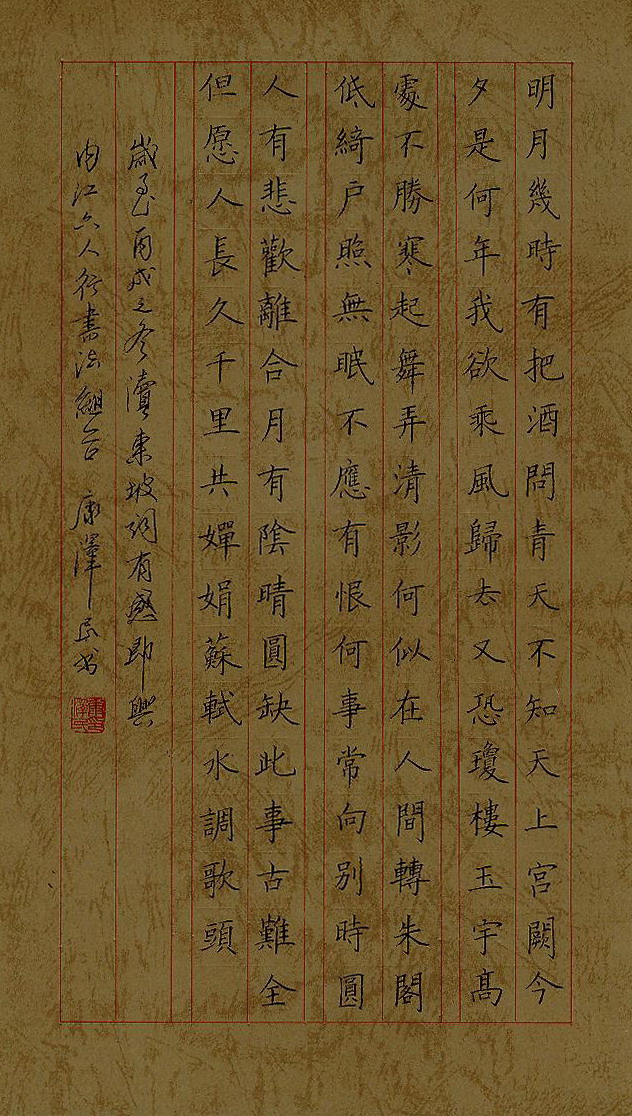 明月幾時有把酒問青天不知天上宮闕今
夕是何年我欲乘風歸去又恐瓊樓玉宇高
處不勝寒起舞弄清影何似在人間轉朱閣
低綺户照無眠不應有恨何事常向別時圓
人有悲歡離合月有陰晴圓缺此事古難全
但愿人長久千里共嬋娟蘇軾水調歌頭
歲至丙戌之冬讀東坡詞有感即興
内江六人行書法組合 康澤民书